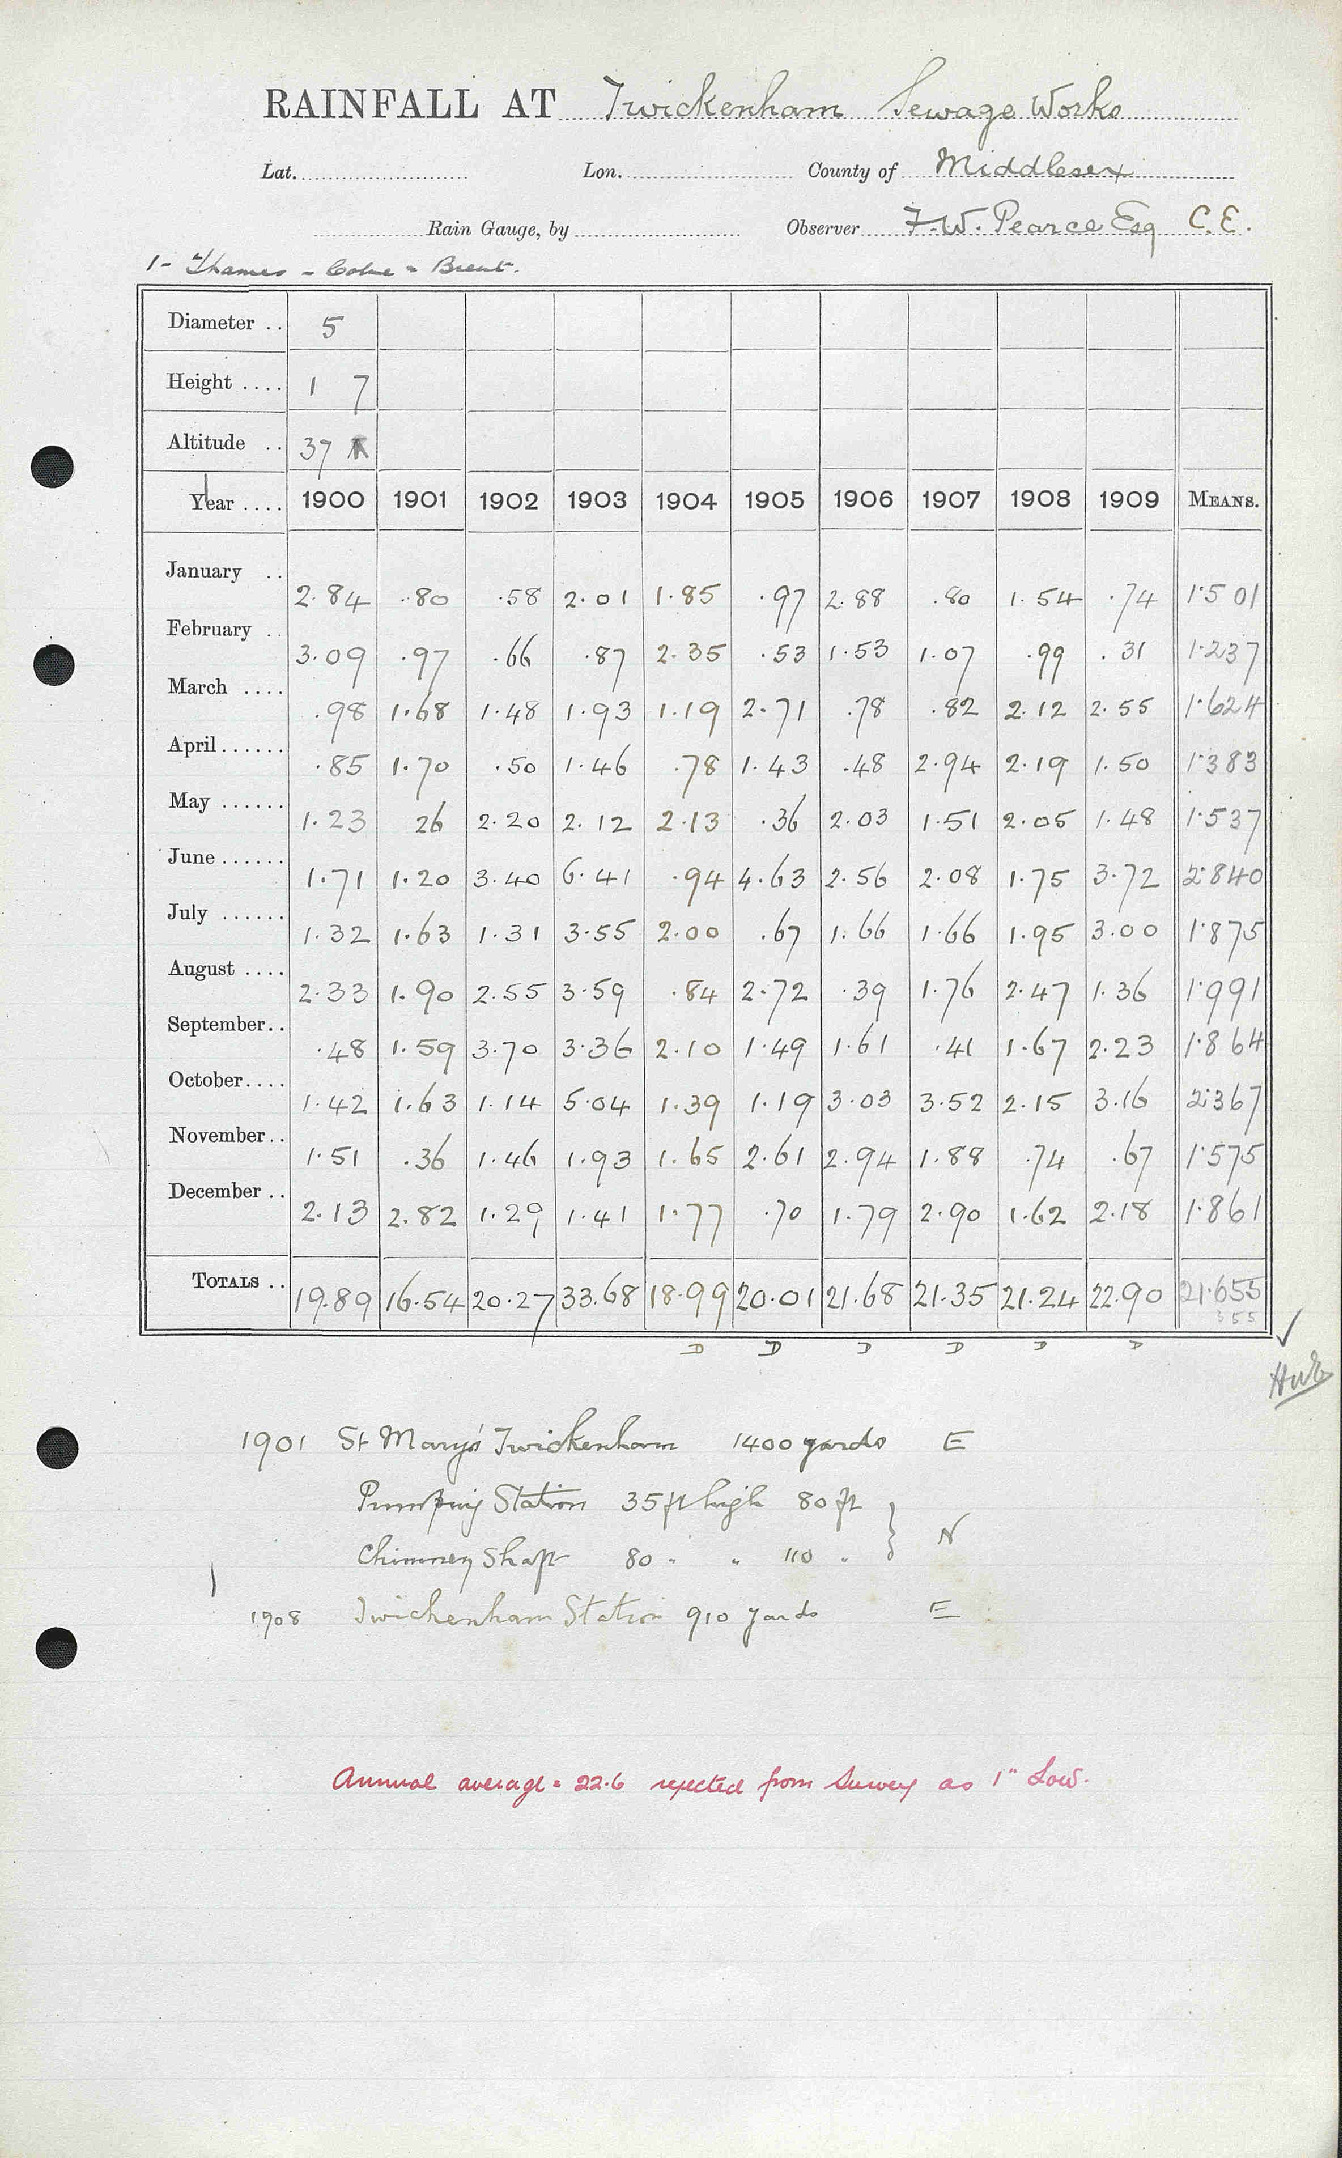 RAINFALL AT Twickenham Sewage Works
Lat. Lon. County of Middlesex
Rain Gauge, by Observer F.W. Pearce Esq C.E.
1- Thames - Colne - Brent.
Diameter .. 5
Height .... 1 7
Altitude .. 37
Year .... 1900 1901 1902 1903 1904 1905 1906 1907 1908 1909 MEANS.
January .. 2.84 .80 .58 2.01 1.85 .97 2.88 .80 1.54 .74 1.501
February .. 3.09 .97 .66 .87 2.35 .53 1.53 1.07 .99 .31 1.237
March .... .98 1.68 1.48 1.93 1.19 2.71 .78 .82 2.12 2.55 1.624
April ...... .85 1.70 .50 1.46 .78 1.43 .48 2.94 2.19 1.50 1.383
May ...... 1.23 26 2.20 2.12 2.13 .36 2.03 1.51 2.05 1.48 1.537
June ...... 1.71 1.20 3.40 6.41 .94 4.63 2.56 2.08 1.75 3.72 2.840
July ...... 1.32 1.63 1.31 3.55 2.00 .67 1.66 1.66 1.95 3.00 1.875
August .... 2.33 1.90 2.55 3.59 .84 2.72 .39 1.76 2.47 1.36 1.991
September.. .48 1.59 3.70 3.36 2.10 1.49 1.61 .41 1.67 2.23 1.864
October.... 1.42 1.63 1.14 5.04 1.39 1.19 3.03 3.52 2.15 3.16 2.367
November.. 1.51 .36 1.46 1.93 1.65 2.61 2.94 1.88 .74 .67 1.575
December .. 2.13 2.82 1.29 1.41 1.77 .70 1.79 2.90 1.62 2.18 1.861
TOTALS .. 19.89 16.54 20.27 33.68 18.99 20.01 21.68 21.35 21.24 22.90 21.655
355
D D D D D D
1901 St Mary's Twickenham 1400 yards E
Pumping Station 35 ft high 80 ft
Chimney Shaft 80 " " 110 " } N
1908 Twickenham Station 910 yards E
Annual average = 22.6 rejected from Survey as 1" Low.